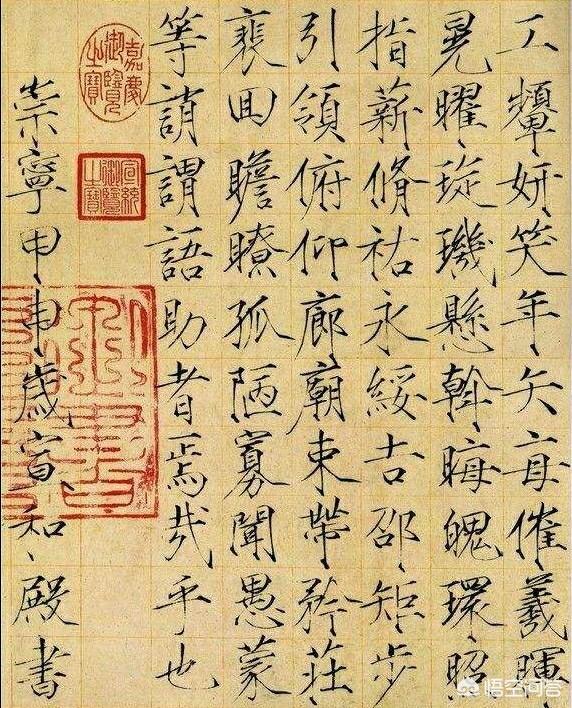 工顰妍笑年矢每催羲暉
晃曜琁璣懸斡晦魄環昭
指薪脩祜永綏吉邵矩步
引領俯仰廊廟束帶矜莊
裵回瞻瞭孤陋寡聞愚蒙
等誚謂語助者焉哉乎也
嘉慶御覽之寶
宣統御覽之寶
崇寧甲申歲宣和殿書
悟空问答